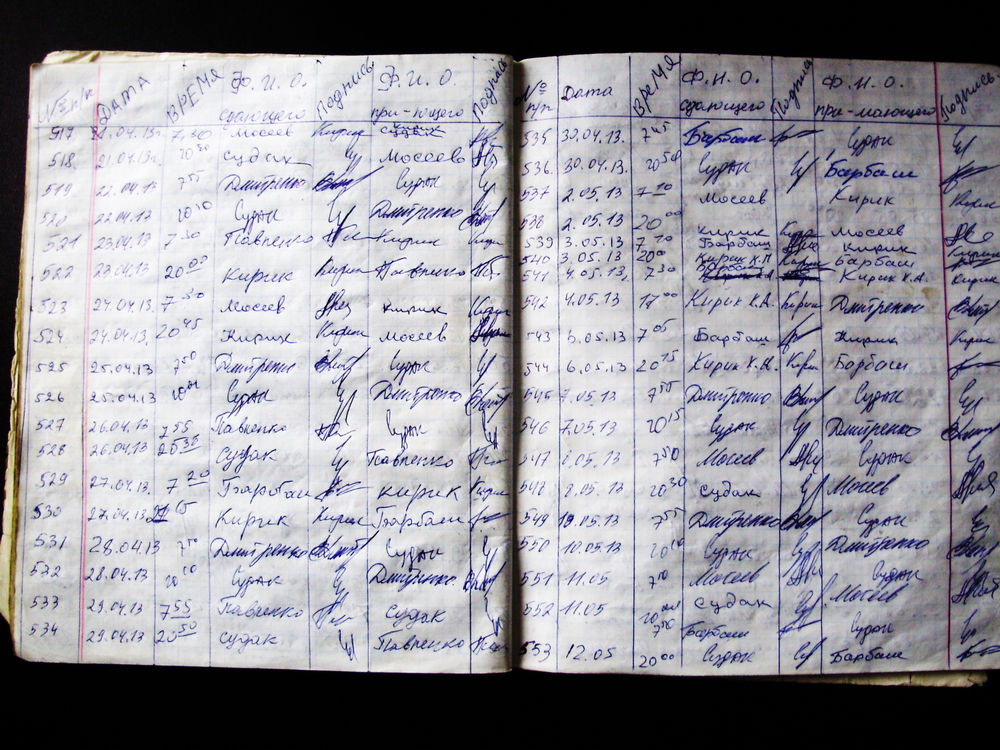 № п/п ДАТА ВРЕМЯ Ф.И.О. сдающего Подпись Ф.И.О. при-ющего Подпись
517 21.04.13г. 7 30 Мосеев Кирик Судак
518. 21.04.13г. 20 50 Судак Мосеев
519 22.04.13 7 55 Дмитренко Судак
520 22.04.13 20 10 Судак Дмитренко
521 23.04.13 7 30 Павленко Кирик
522 23.04.13 20 00 Кирик Кирик Павленко
523 24.04.13 7 50 Мосеев Кирик
524 24.04.13. 20 45 Кирик Кирик Мосеев
525 25.04.13 7 50 Дмитренко Судак
526 25.04.13 Судак Дмитренко
527 26.04.13 7 55 Павленко Судак
528 26.04.13 20 35 Судак Павленко
529 27.04.13. 7 20 Барбаш Кирик Кирик
530 27.04.13 Кирик Кирик Барбаш
531 28.04.13 7 50 Дмитренко Судак
532 28.04.13 20 10 Судак Дмитренко
533 29.04.13 7 55 Павленко Судак
534 29.04.13 20 50 Судак Павленко
№ п/п Дата ВРЕМЯ Ф.И.О. сдающего Подпись Ф.И.О. при-мающего Подпись
535 30.04.13. 7 45 Барбаш Судак
536. 30.04.13. 20 50 Судак Барбаш
537 2.05.13 7 10 Мосеев Кирик Кирик
538 2.05.13 20 00 Кирик Мосеев
539 3.05.13 7 10 Барбаш Кирик
540 3.05.13 20 00 Кирик Барбаш
541 4.05.13. 7 30 Барбаш Кирик К.А. Кирик
542 4.05.13 17 00 Кирик К.А. Кирик Дмитренко
543 6.05.13 7 05 Барбаш Кирик Кирик
544 6.05.13 20 15 Кирик К.А. Кирик Барбаш
545 7.05.13 7 55 Дмитренко Судак
546 7.05.13. 20 15 Судак Дмитренко
547 8.05.13 7 50 Мосеев Судак
548 8.05.13 20 30 Судак Мосеев
549 10.05.13 7 55 Дмитренко Судак
550 10.05.13 20 10 Судак Дмитренко
551 11.05 7 50 Мосеев Судак
552 11.05 Судак Мосеев
7 50 Барбаш Судак
553 12.05 20 00 Судак Барбаш